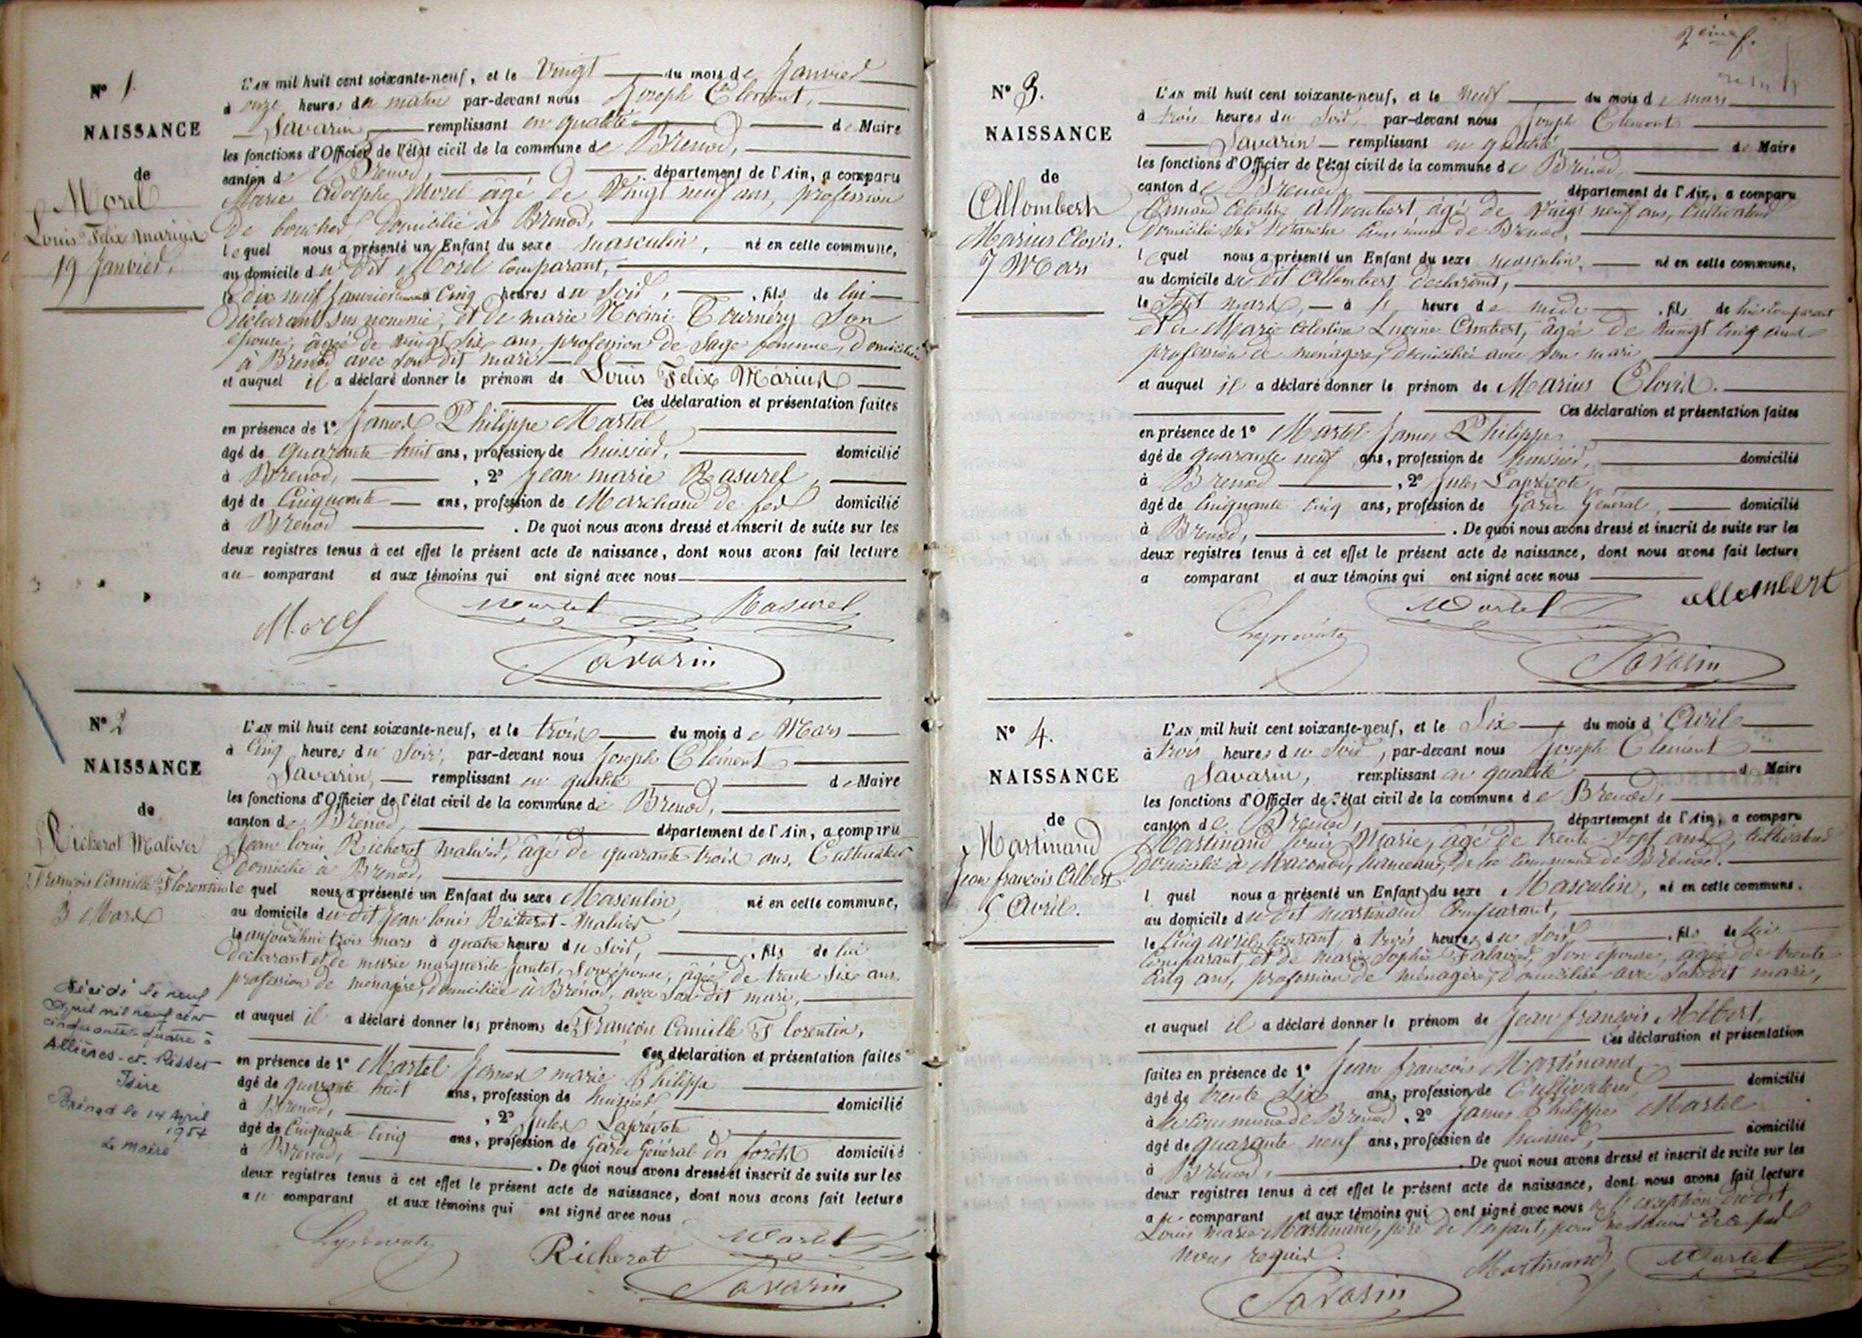 N° 1
NAISSANCE
de
Morel
Louis Felix Marius
19 Janvier.
L'AN mil huit cent soixante-neuf, et le Vingt du mois de Janvier
à onze heures du matin par-devant nous Joseph Clement,
Savarin, remplissant en qualité de Maire
les fonctions d'Officier de l'état civil de la commune de Brenod,
canton de Brenod, département de l'Ain, a comparu
Marie Adolphe Morel âgé de Vingt neuf ans, profession
de boucher domicilié à Brenod,
lequel nous a présenté un Enfant du sexe masculin, né en cette commune,
au domicile du dit Morel comparant,
le dix neuf Janvier courant à cinq heures du soir, fils de lui
déclarant sus nommé, et de marie Noémi Tournery son
épouse, âgée de vingt six ans, profession de sage femme, domiciliée
à Brenod avec son dit mari
et auquel il a déclaré donner le prénom de Louis Felix Marius
Ces déclaration et présentation faites
en présence de 1° James Philippe Martel
âgé de quarante-huit ans, profession de huissier, domicilié
à Brenod, , 2° Jean marie Rasurel,
âgé de Cinquante ans, profession de Marchand de fer domicilié
à Brenod . De quoi nous avons dressé et inscrit de suite sur les
deux registres tenus à cet effet le présent acte de naissance, dont nous avons fait lecture
au comparant et aux témoins qui ont signé avec nous
Morel Martel Rasurel
Savarin
N° 2
NAISSANCE
de
Richerot Malivet
François Camille Florentin
3 Mars
Décédé le neuf
Avril mil neuf cent
cinquante-quatre à
Allières-et-Risset
Isère
Brénod le 14 Avril
1954
Le maire
L'AN mil huit cent soixante-neuf, et le trois du mois de Mars
à Cinq heures du Soir, par-devant nous Joseph Clément
Savarin, remplissant en qualité de Maire
les fonctions d'Officier de l'état civil de la commune de Brenod,
canton de Brenod, département de l'Ain, a comparu
Jean louis Richerot malivet, âgé de quarante trois ans, Cultivateur
domicilié à Brenod,
lequel nous a présenté un Enfant du sexe Masculin, né en cette commune,
au domicile du dit Jean louis Richerot-malivet
le aujourd'hui trois mars à quatre heures du Soir, fils de lui
déclarant et de marie marguerite Jantet, son épouse, âgée de trente six ans,
profession de ménagère, domiciliée à Brénod, avec son dit mari,
et auquel il a déclaré donner les prénoms de François Camille Florentin,
Ces déclaration et présentation faites
en présence de 1° Martel James marie Philippe
âgé de quarante huit ans, profession de huissier, domicilié
à Brenod, , 2° Jules Laprévote
âgé de Cinquante cinq ans, profession de Garde Général des forêts domicilié
à Brenod, . De quoi nous avons dressé et inscrit de suite sur les
deux registres tenus à cet effet le présent acte de naissance, dont nous avons fait lecture
au comparant et aux témoins qui ont signé avec nous
Martel
Richerot
Savarin
N° 3.
NAISSANCE
de
Allombert
Marius Clovis.
7 Mars
L'AN mil huit cent soixante-neuf, et le neuf du mois de mars
à trois heures du Soir par-devant nous Joseph Clement
Savarin remplissant en qualité de Maire
les fonctions d'Officier de l'état civil de la commune de Brénod,
canton de Brenod, département de l'Ain, a comparu
Célestin Allombert, âgé de Vingt neuf ans, Cultivateur
domicilié commune de Brenod,
lequel nous a présenté un Enfant du sexe masculin, né en cette commune,
au domicile du dit Allombert déclarant,
le Sept mars, à heure de midi fils de lui comparant
et de Marie Célestine Lucine Ambert, âgée de vingt cinq ans
profession de ménagère, domiciliée avec son mari,
et auquel il a déclaré donner le prénom de Marius Clovis.
Ces déclaration et présentation faites
en présence de 1° Martel James Philippe
âgé de quarante neuf ans, profession de huissier, domicilié
à Brenod , 2° Jules Laprévote,
âgé de Cinquante cinq ans, profession de Garde Général, domicilié
à Brenod, . De quoi nous avons dressé et inscrit de suite sur les
deux registres tenus à cet effet le présent acte de naissance, dont nous avons fait lecture
a comparant et aux témoins qui ont signé avec nous
Allombert
Martel
Savarin
N° 4.
NAISSANCE
de
Martinand
Jean François Albert
5 Avril.
L'AN mil huit cent soixante-neuf, et le Six du mois d'Avril
à trois heures du Soir, par-devant nous Joseph Clément
Savarin, remplissant en qualité de Maire
les fonctions d'Officier de l'état civil de la commune de Brenod,
canton de Brenod, département de l'Ain, a comparu
Martinand Louis Marie, âgé de trente sept ans, Cultivateur
domicilié à Macconod, hameau, de la Commune de Brénod.
l quel nous a présenté un Enfant du sexe Masculin, né en cette commune.
au domicile du dit Martinand Comparant,
le Cinq avril courant, à trois heures du Soir fils de lui
Comparant, et de marie Sophie Falavier, son épouse, âgée de trente
cinq ans, profession de ménagère, domiciliée avec son dit mari,
et auquel il a déclaré donner le prénom de Jean françois Albert,
Ces déclaration et présentation
faites en présence de 1° Jean francois Martinand,
âgé de trente six ans, profession de Cultivateur domicilié
à la Commune de Brenod , 2° James Philippe Martel
âgé de quarante neuf ans, profession de huissier, domicilié
à Brenod, . De quoi nous avons dressé et inscrit de suite sur les
deux registres tenus à cet effet le présent acte de naissance, dont nous avons fait lecture
au comparant et aux témoins qui ont signé avec nous à l'exception dudit
Louis Marie Martinand, père de l'enfant, pour ne savoir de ce par
nous requis.
Martinand Martel
Savarin